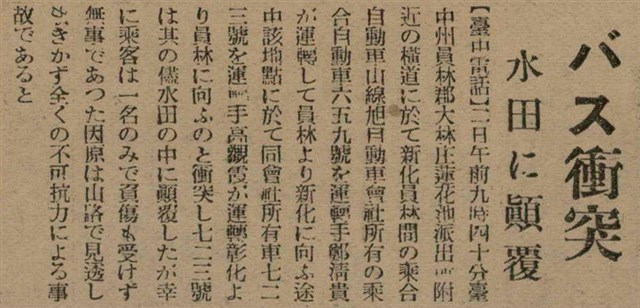 バス衝突
水田に顚覆
【臺中電話】二日午前九時四十分臺
中州員林郡大林庄蓮花池派出所附
近の橫道に於て新化員林間の乘合
自動車山線旭自動車會社所有の乘
合自動車六五九號を運轉手鄭淸貴
が運轉して員林より新化に向ふ途
中該地點に於て同會社所有車七二
三號を運轉手高觀霞が運轉彰化よ
り員林に向ふのと衝突し七二三號
は其の儘水田の中に顚覆したが幸
に乘客は一名のみで負傷も受けず
無事であつた因原は山路で見透し
がきかず全くの不可抗力による事
故であると